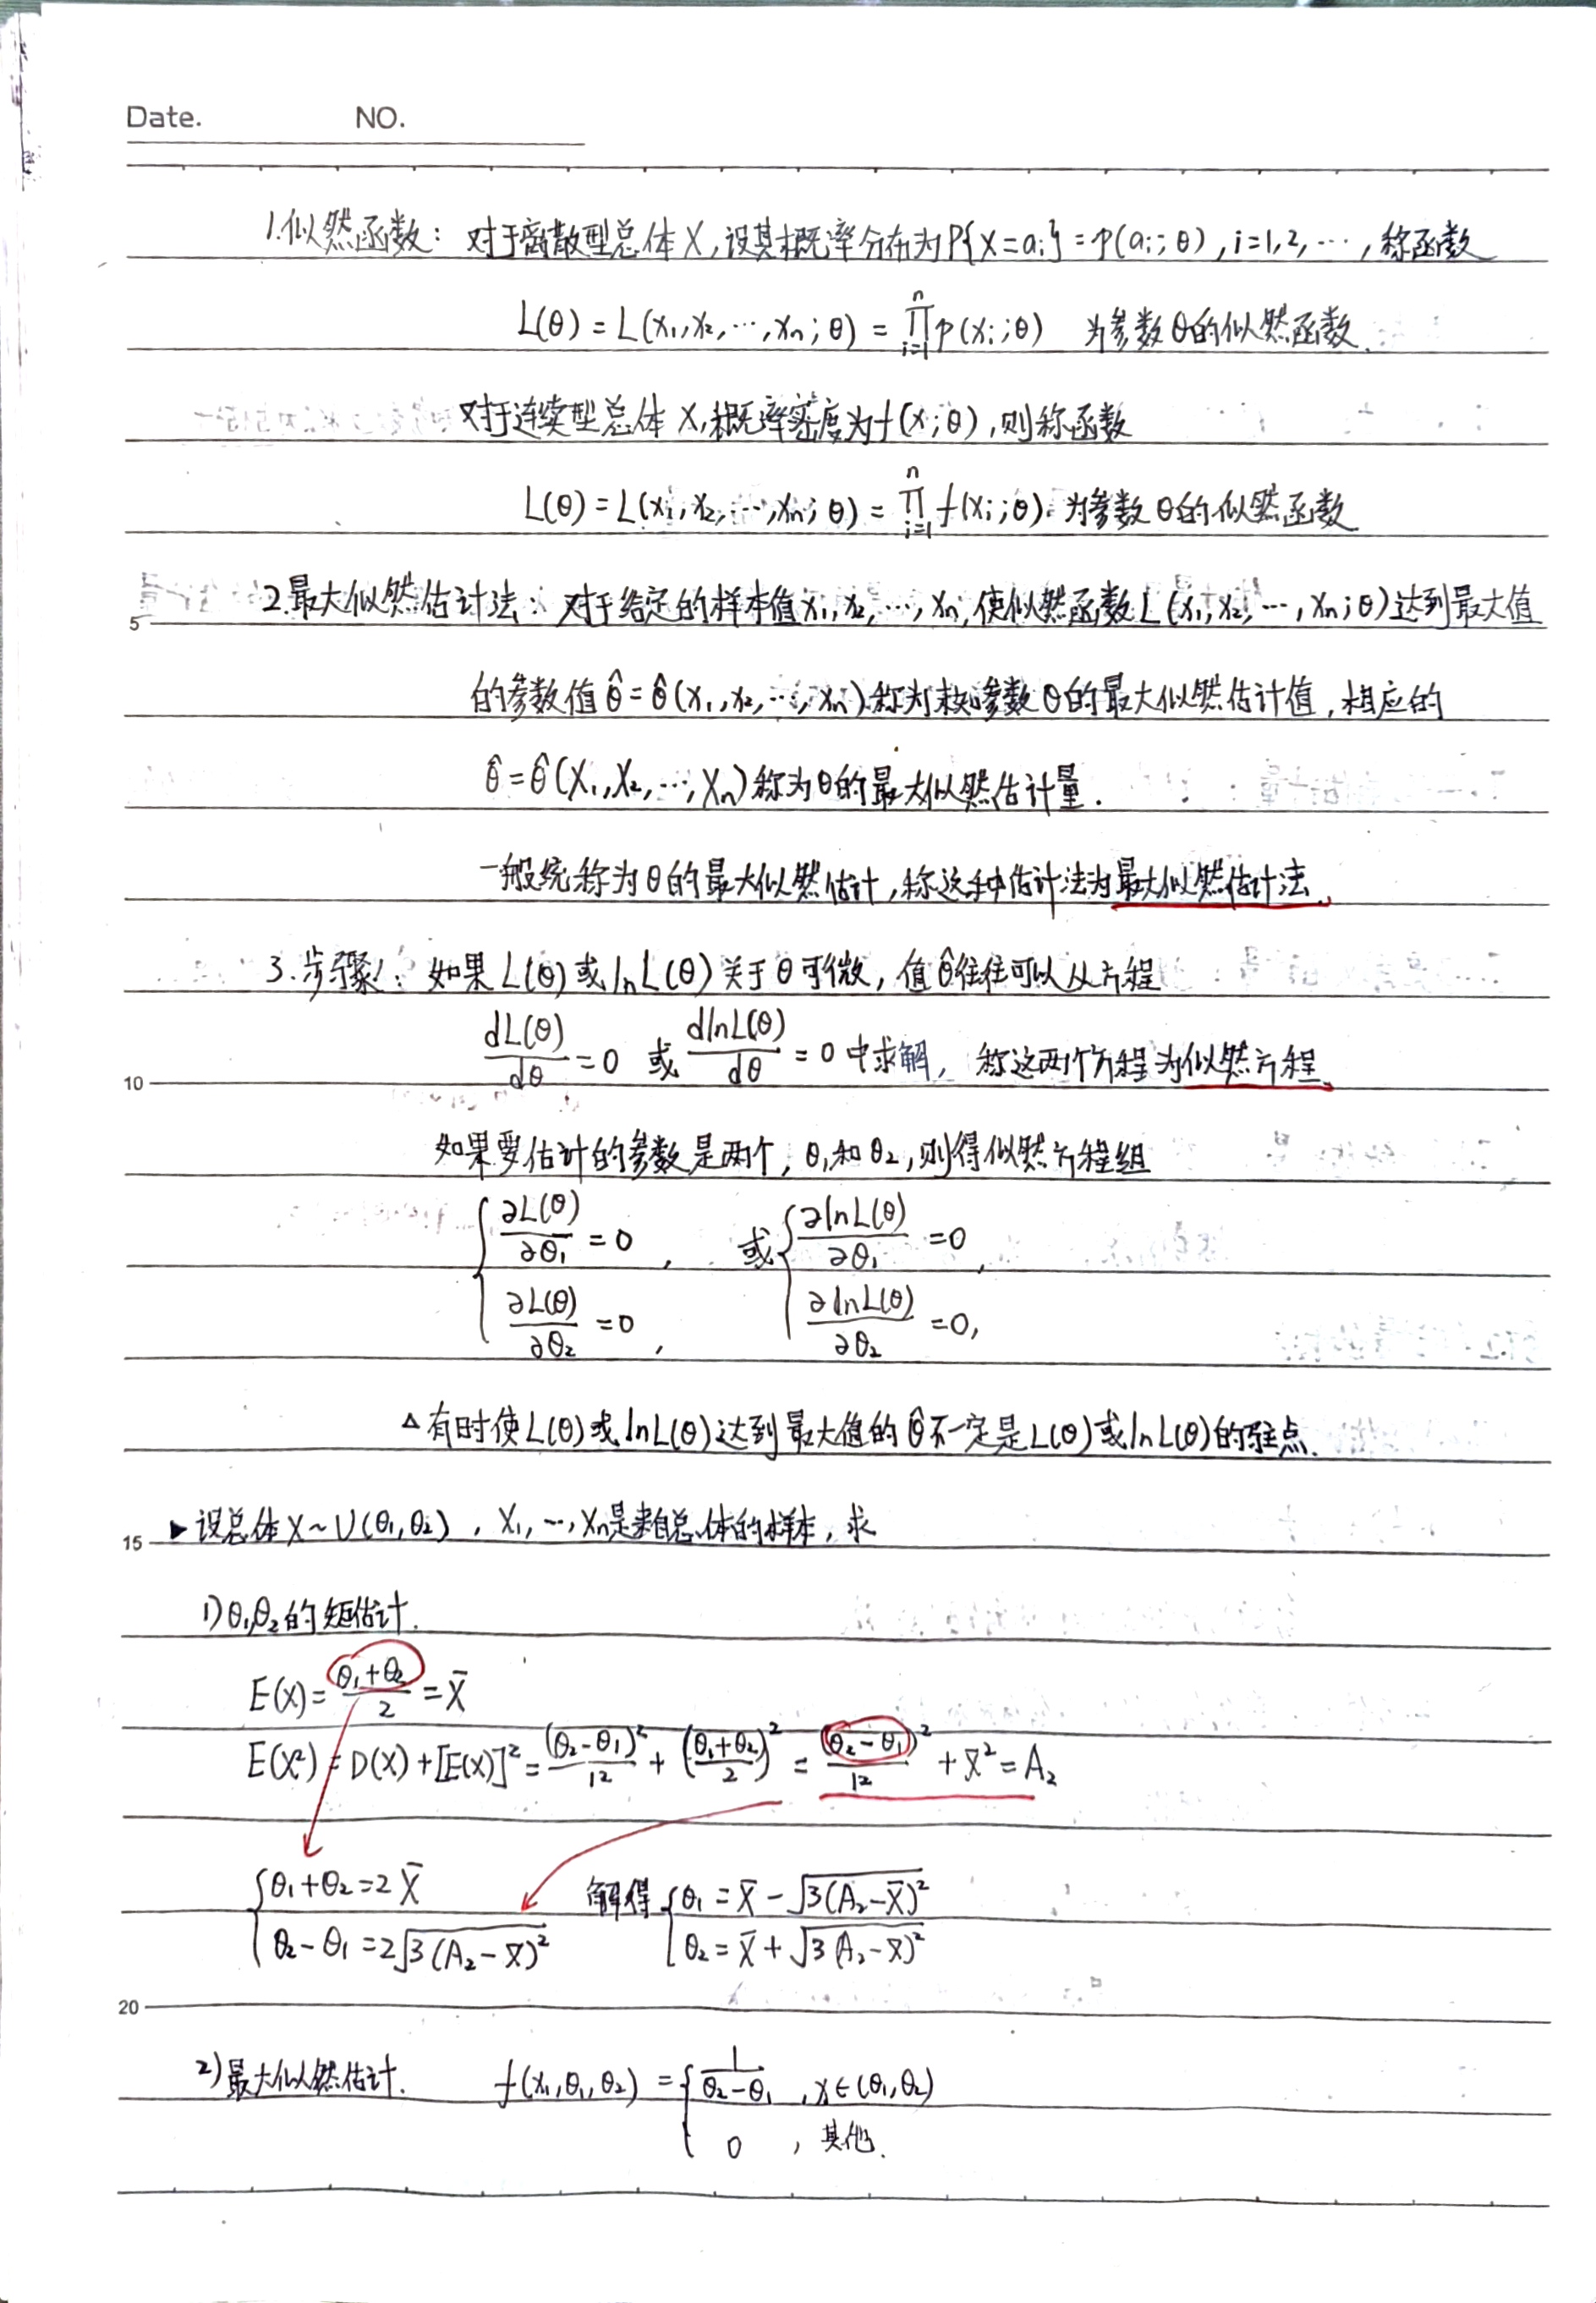 Date. NO.
1.似然函数：对于离散型总体X,设其概率分布为P{X=ai}=p(ai;θ),i=1,2,…,称函数
L(θ)=L(x₁,x₂,…,xn;θ)=∏(i=1→n) p(xi;θ) 为参数θ的似然函数.
对于连续型总体X,概率密度为f(x;θ),则称函数
L(θ)=L(x₁,x₂,…,xn;θ)=∏(i=1→n) f(xi;θ) 为参数θ的似然函数
2.最大似然估计法：对于给定的样本值x₁,x₂,…,xn,使似然函数L(x₁,x₂,…,xn;θ)达到最大值
5
的参数值θ̂=θ̂(x₁,x₂,…,xn)称为未知参数θ的最大似然估计值,相应的
θ̂=θ̂(X₁,X₂,…,Xn)称为θ的最大似然估计量.
一般统称为θ的最大似然估计,称这种估计法为最大似然估计法.
3.步骤：如果L(θ)或lnL(θ)关于θ可微,值θ̂往往可以从方程
dL(θ)/dθ=0 或 dlnL(θ)/dθ=0中求解,称这两个方程为似然方程.
10
如果要估计的参数是两个,θ₁和θ₂,则得似然方程组
{∂L(θ)/∂θ₁=0, 或{∂lnL(θ)/∂θ₁=0,
∂L(θ)/∂θ₂=0, ∂lnL(θ)/∂θ₂=0,
△有时使L(θ)或lnL(θ)达到最大值的θ̂不一定是L(θ)或lnL(θ)的驻点.
15 ▶设总体X~U(θ₁,θ₂),X₁,…,Xn是来自总体的样本,求
1)θ₁,θ₂的矩估计.
E(X)=(θ₁+θ₂)/2=X̄
E(X²)=D(X)+[E(X)]²=(θ₂-θ₁)²/12+((θ₁+θ₂)/2)²=(θ₂-θ₁)²/12+X̄²=A₂
{θ₁+θ₂=2X̄ 解得{θ₁=X̄-√3(A₂-X̄)²
θ₂-θ₁=2√3(A₂-X̄)² θ₂=X̄+√3(A₂-X̄)²
20
2)最大似然估计. f(x,θ₁,θ₂)={1/(θ₂-θ₁),x∈(θ₁,θ₂)
0,其他.